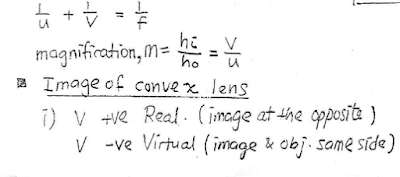 1/u + 1/v = 1/f
magnification, m = hi/ho = v/u
Image of convex lens
i) V +ve Real. (image at the opposite)
V -ve Virtual (image & obj. same side)